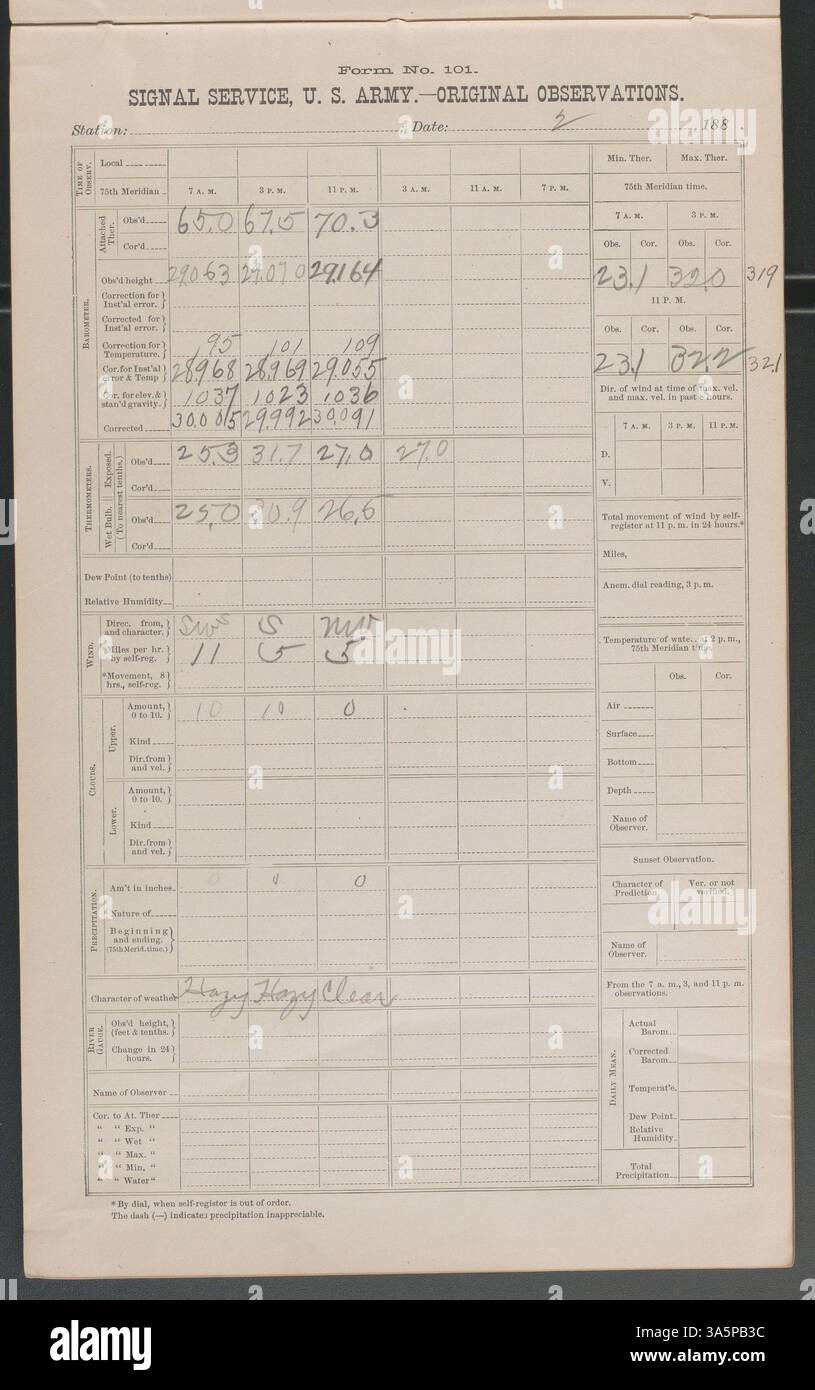 Form No. 101.
SIGNAL SERVICE, U. S. ARMY.—ORIGINAL OBSERVATIONS.
Station: Date: 2 , 188 .
TIME OF OBSERV.
Local
75th Meridian 7 A. M. 3 P. M. 11 P. M. 3 A. M. 11 A. M. 7 P. M.
BAROMETER.
Attached Ther.
Obs'd 65.0 67.5 70.3
Cor'd
Obs'd height 29.063 29.070 29.164
Correction for Inst'al error.
Corrected for Inst'al error.
Correction for Temperature. 95 101 109
Cor. for Inst'al error & Temp 28.968 28.969 29.055
Cor. for elev. & stan'd gravity. 1037 1023 1036
Corrected 30.005 29.992 30.091
THERMOMETERS.
(To nearest tenths.)
Exposed.
Obs'd 25.3 31.7 27.0 27.0
Cor'd
Wet Bulb.
Obs'd 25.0 30.9 26.5
Cor'd
Dew Point (to tenths)
Relative Humidity
WIND.
Direc. from, and character. SW S NW
Miles per hr. by self-reg. 11 5 5
*Movement, 8 hrs., self-reg.
CLOUDS.
Upper.
Amount, 0 to 10. 10 10 0
Kind
Dir. from and vel.
Lower.
Amount, 0 to 10.
Kind
Dir. from and vel.
PRECIPITATION.
Am't in inches 0 0 0
Nature of
Beginning and ending. (75th Merid. time.)
Character of weather Hazy Hazy Clear
RIVER GAUGE.
Obs'd height, (feet & tenths.)
Change in 24 hours.
Name of Observer
Cor. to At. Ther
" " Exp. "
" " Wet "
" " Max. "
" " Min. "
" " Water "
* By dial, when self-register is out of order.
The dash (—) indicates precipitation inappreciable.
Min. Ther. Max. Ther.
75th Meridian time.
7 A. M. 3 P. M.
Obs. Cor. Obs. Cor.
23.1 32.0 319
11 P. M.
Obs. Cor. Obs. Cor.
23.1 32.2 321
Dir. of wind at time of max. vel. and max. vel. in past 8 hours.
7 A. M. 3 P. M. 11 P. M.
D.
V.
Total movement of wind by self-register at 11 p. m. in 24 hours.*
Miles,
Anem. dial reading, 3 p. m.
Temperature of water at 2 p. m., 75th Meridian time.
Obs. Cor.
Air
Surface
Bottom
Depth
Name of Observer.
Sunset Observation.
Character of Prediction. Ver. or not verified.
Name of Observer.
From the 7 a. m., 3, and 11 p. m. observations.
DAILY MEAN.
Actual Barom
Corrected Barom
Temperat'e.
Dew Point
Relative Humidity
Total Precipitation
alamy
a
alamy
www.alamy.com
Image ID: 3A5PB3C